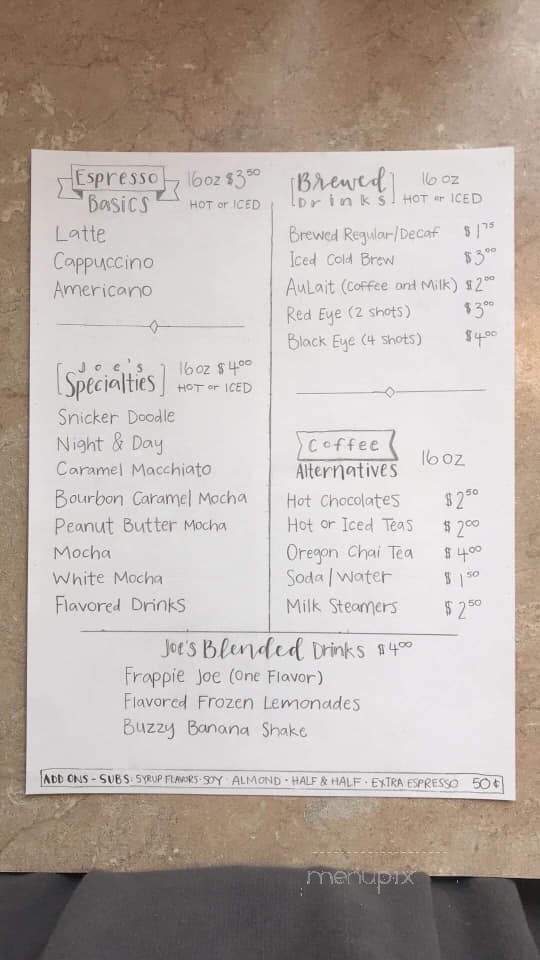 Espresso Basics 16oz $3.50
HOT or ICED
Latte
Cappuccino
Americano
Joe's Specialties 16oz $4.00
HOT or ICED
Snicker Doodle
Night & Day
Caramel Macchiato
Bourbon Caramel Mocha
Peanut Butter Mocha
Mocha
White Mocha
Flavored Drinks
Brewed Drinks 16oz
HOT or ICED
Brewed Regular/Decaf $1.75
Iced Cold Brew $3.00
AuLait (Coffee and Milk) $2.00
Red Eye (2 shots) $3.00
Black Eye (4 shots) $4.00
Coffee
Alternatives 16oz
Hot Chocolates $2.50
Hot or Iced Teas $2.00
Oregon Chai Tea $4.00
Soda/Water $1.50
Milk Steamers $2.50
Joe's Blended Drinks $4.00
Frappie Joe (One Flavor)
Flavored Frozen Lemonades
Buzzy Banana Shake
ADD ONS - SUBS · SYRUP FLAVORS · SOY · ALMOND · HALF & HALF · EXTRA ESPRESSO 50¢
menupix